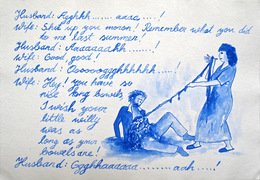 Husband: Agghh....... aaaa .....!
Wife: Shut up you moron! Remember what you did
to me last summer!
Husband: Aaaaaaakkh .......!
Wife: Good, good!
Husband: Oooooogggghhhhhh.....!
Wife: Hey! You have so
nice long bowels
I wish your
little willy
was as
long as your
bowels are!
Husband: Ggghhaaaaaa........aah.....!